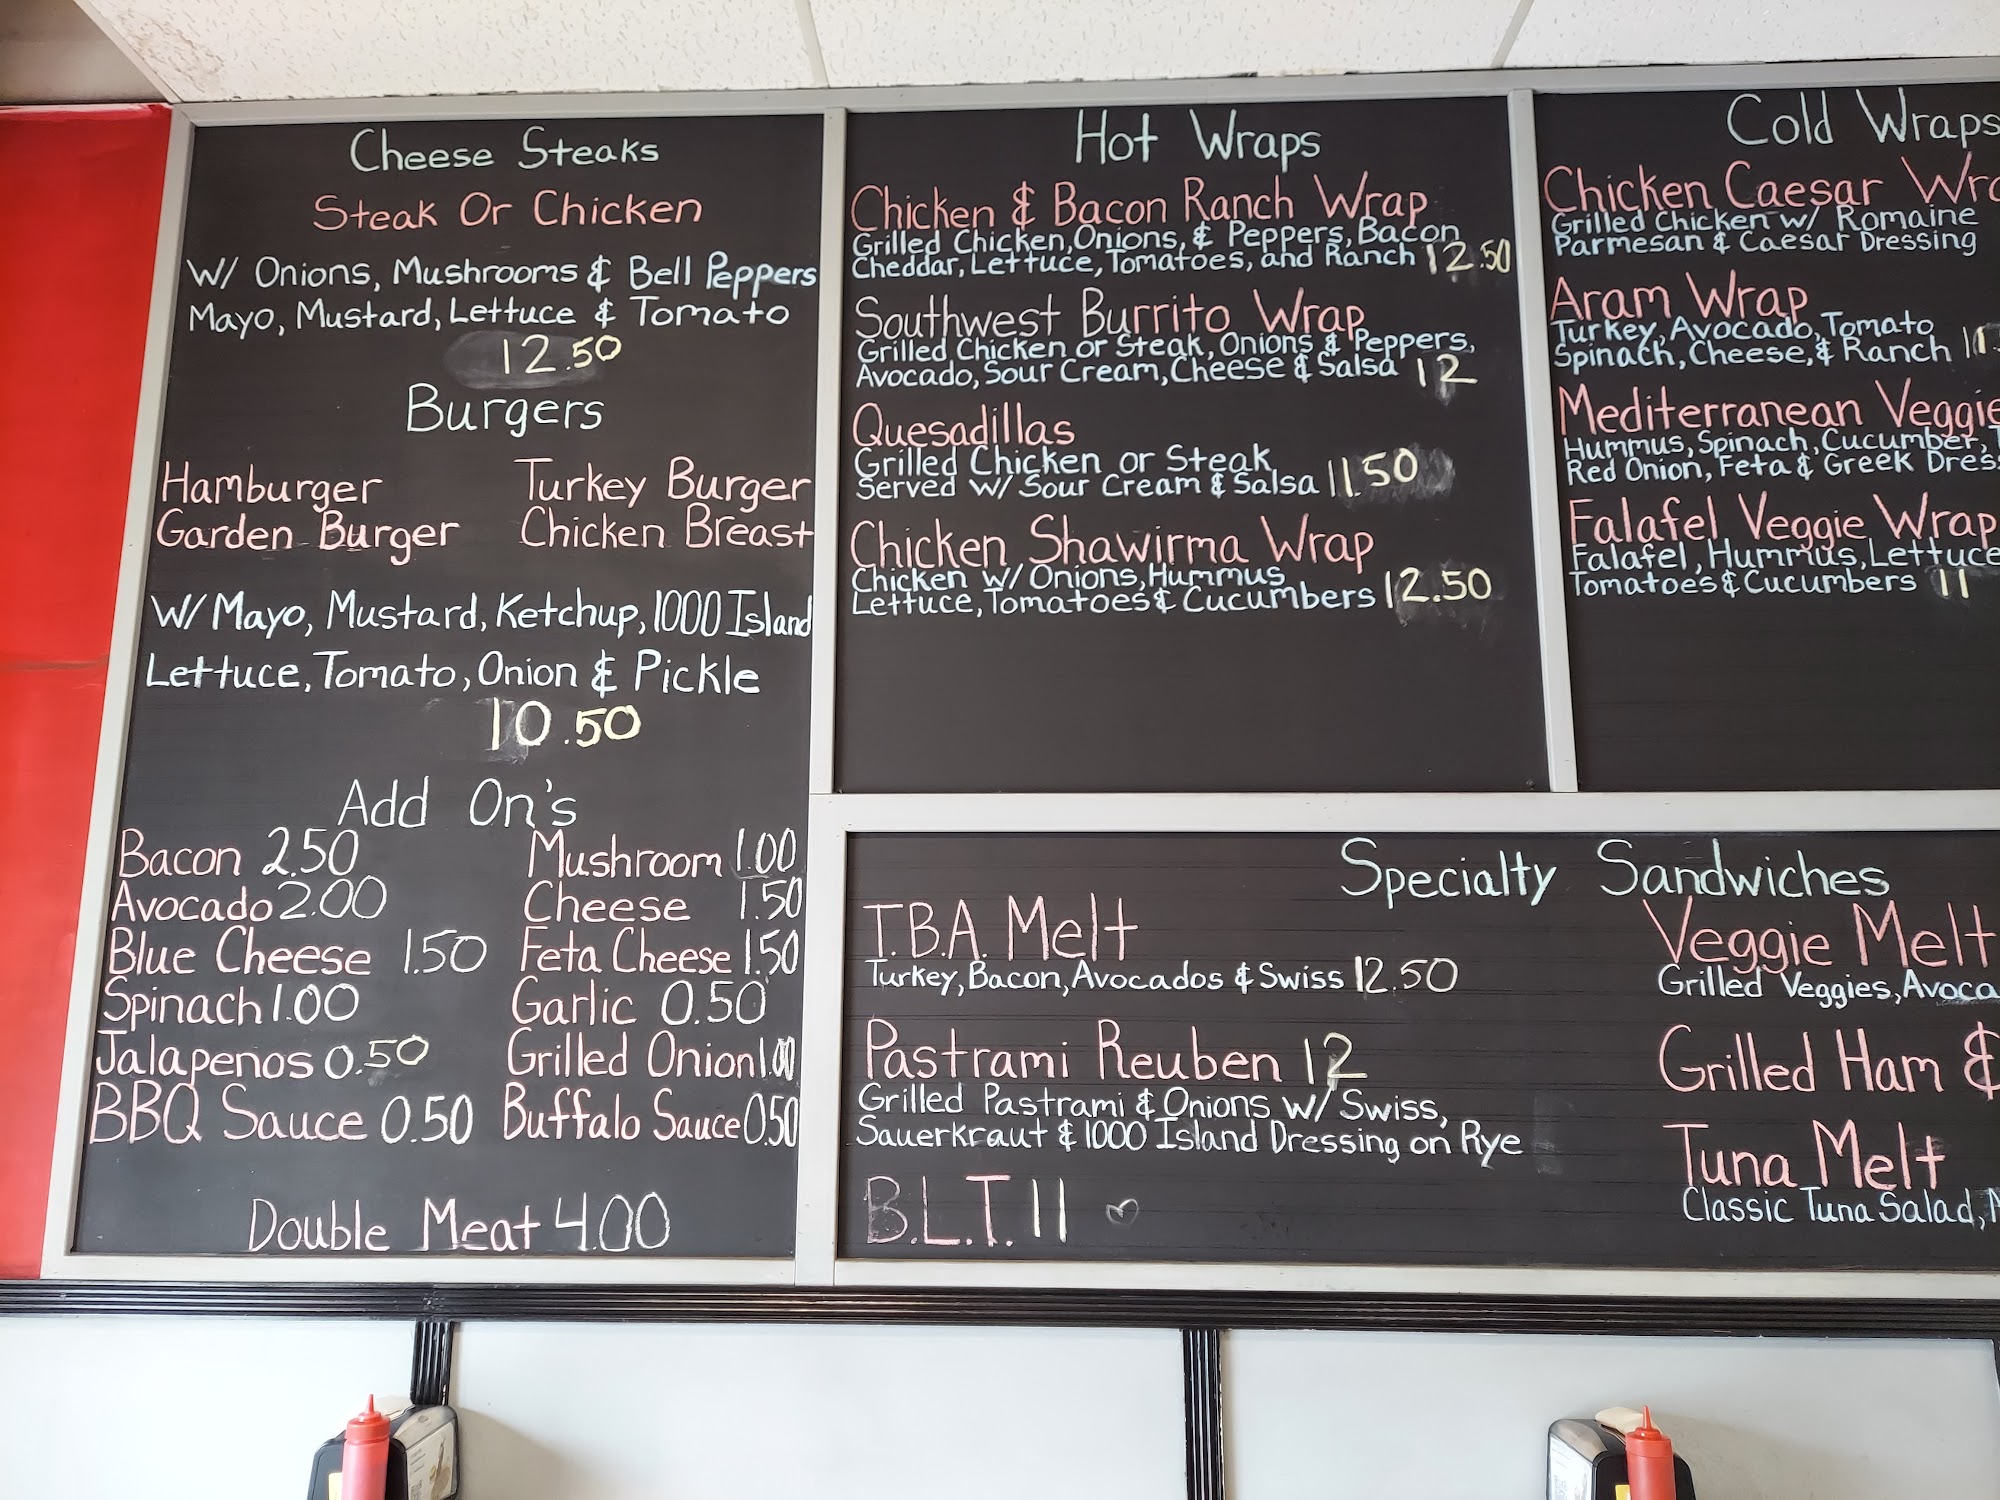 Cheese Steaks
Steak Or Chicken
W/ Onions, Mushrooms & Bell Peppers
Mayo, Mustard, Lettuce & Tomato
12.50
Burgers
Hamburger Turkey Burger
Garden Burger Chicken Breast
W/ Mayo, Mustard, Ketchup, 1000 Island
Lettuce, Tomato, Onion & Pickle
10.50
Add On's
Bacon 2.50 Mushroom 1.00
Avocado 2.00 Cheese 1.50
Blue Cheese 1.50 Feta Cheese 1.50
Spinach 1.00 Garlic 0.50
Jalapenos 0.50 Grilled Onion 1.00
BBQ Sauce 0.50 Buffalo Sauce 0.50
Double Meat 4.00
Hot Wraps
Chicken & Bacon Ranch Wrap
Grilled Chicken, Onions, & Peppers, Bacon
Cheddar, Lettuce, Tomatoes, and Ranch 12.50
Southwest Burrito Wrap
Grilled Chicken or Steak, Onions & Peppers,
Avocado, Sour Cream, Cheese & Salsa 12
Quesadillas
Grilled Chicken or Steak
Served w/ Sour Cream & Salsa 11.50
Chicken Shawirma Wrap
Chicken w/ Onions, Hummus
Lettuce, Tomatoes & Cucumbers 12.50
Cold Wraps
Chicken Caesar
Grilled Chicken w/ Romaine
Parmesan & Caesar Dressing
Aram Wrap
Turkey, Avocado, Tomato
Spinach, Cheese, & Ranch
Mediterranean Veggie
Hummus, Spinach, Cucumber,
Red Onion, Feta & Greek
Falafel Veggie Wrap
Falafel, Hummus, Lettuce
Tomatoes & Cucumbers 11
Specialty Sandwiches
T.B.A. Melt
Turkey, Bacon, Avocados & Swiss 12.50
Pastrami Reuben 12
Grilled Pastrami & Onions w/ Swiss,
Sauerkraut & 1000 Island Dressing on Rye
B.L.T. 11
Veggie Melt
Grilled Veggies,
Grilled Ham &
Tuna Melt
Classic Tuna Salad,